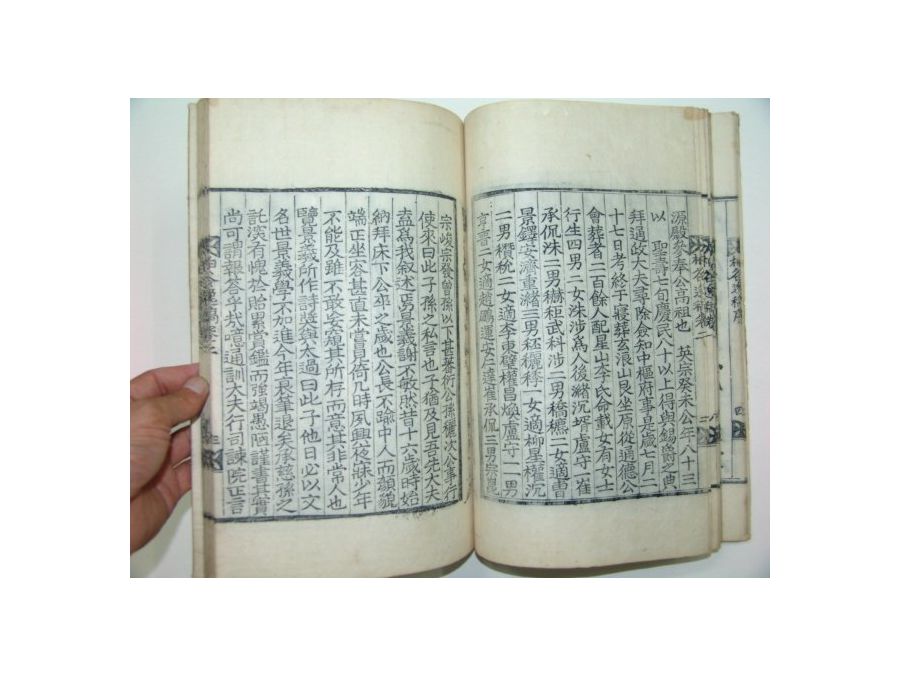 源殿參奉公高祖也 英宗癸未公年八十三
以 聖壽七旬慶民八十以上得與錫爵之典
拜通政大夫尋除僉知中樞府事是歲七月二
十七日考終于寢葬玄浪山艮坐原從適德公
會葬者二百餘人配星山李氏命載女有女士
行生四男一女洙涉爲人後瀦沉壻盧守一崔
承侃洙二男 秬武科涉二男橋 二女適曹
景鐸安濟重瀦三男秠 稃一女適柳星權沉
二男穳稅二女適李東壁權昌煥盧守一一男
言普二女適趙鵬運安 達崔承侃三男宗崑
宗峻宗發曾孫以下甚蕃衍公孫 次公事行
使來曰此子孫之私言也子猶及見吾先大夫
盍爲我叙述焉景羲謝不敏猒昔十六歲時始
納拜床下公卒之歲也公長不踰中人而頭貌
端正坐容甚直未嘗見倚几時夙興夜寐少年
不能及雖不敢妄窺其所存而意其非常人也
覽景羲所作詩奬與太過曰此子他日必以文
名世景羲學不加進今年衰筆退矣承慈孫之
託深有愧於貽累賞鑑而强竭愚陋謹書其實
尚可謂報答乎哉噫通訓大夫行司諫院正言